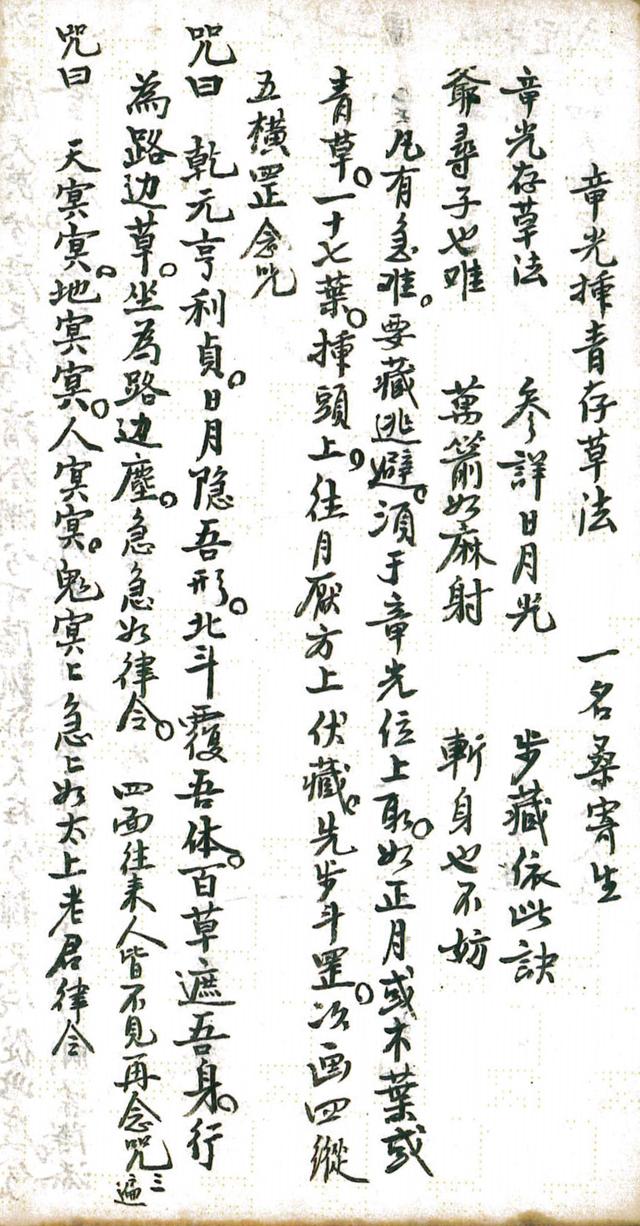 章光插青存草法 一名桑寄生
章光存草法 参詳日月光 步藏依此訣
爺尋子也难 萬箭如麻射 斬身也不妨
凡有急难。要藏逃避。須于章光位上取。如正月或木葉或
青草。一十七葉。插頭上。往月厭方上伏藏。先步斗罡。次画四縱
五横罡念咒
咒曰 乾元亨利貞。日月隐吾形。北斗覆吾体。百草遮吾身。行
為路边草。坐為路边塵。急急如律令。 四面往来人皆不見再念咒三遍
咒曰 天冥冥。地冥冥。人冥冥。鬼冥〻急〻如太上老君律令